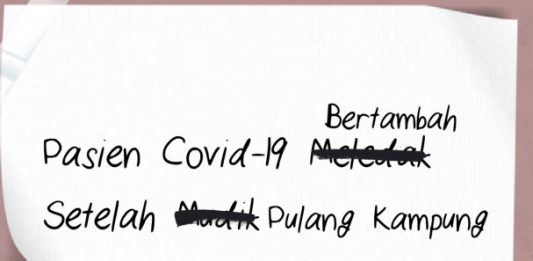 Bertambah
Pasien Covid-19 Meledak
Setelah Mudik Pulang Kampung